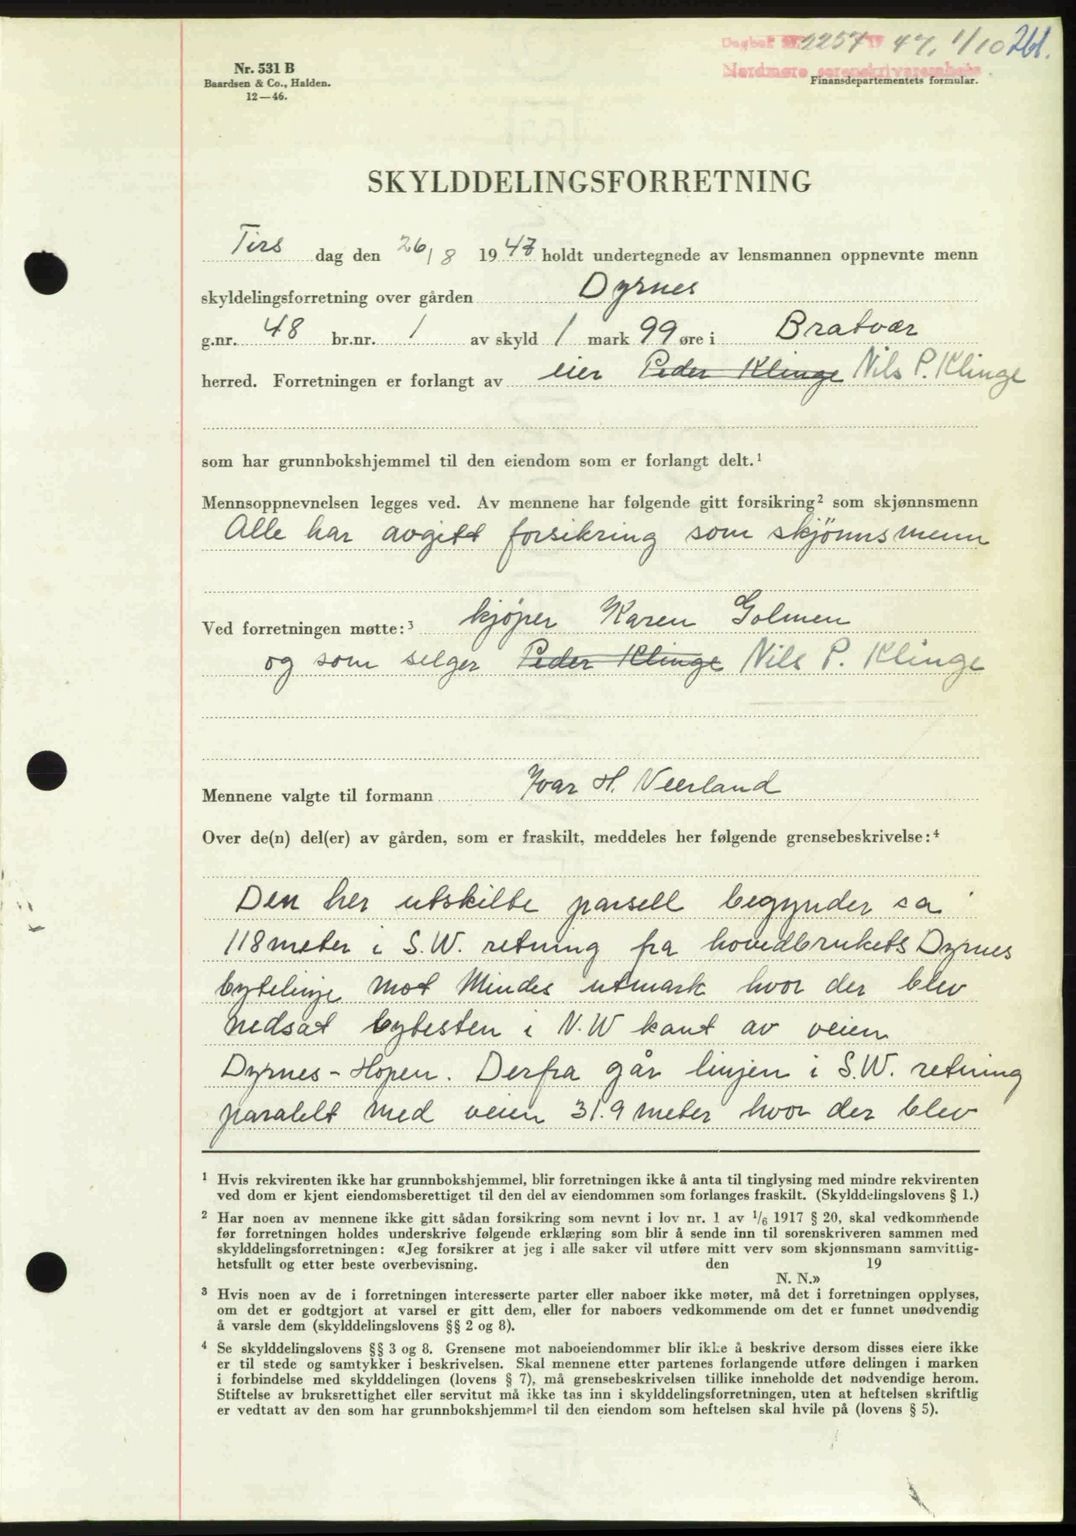 Dagbok nr. 2257 19 47, 1/10 261.
Nordmøre sorenskriverembete
Nr. 531 B
Baardsen & Co., Halden.
12—46.
Finansdepartementets formular.
SKYLDDELINGSFORRETNING
Tirs dag den 26/8 1947 holdt undertegnede av lensmannen oppnevnte menn
skyldelingsforretning over gården Dyrnes
g.nr. 48 br.nr. 1 av skyld 1 mark 99 øre i Bratvær
herred. Forretningen er forlangt av eier Peder Klinge Nils P. Klinge
som har grunnbokshjemmel til den eiendom som er forlangt delt.¹
Mennsoppnevnelsen legges ved. Av mennene har følgende gitt forsikring² som skjønnsmenn
Alle har avgitt forsikring som skjønnsmenn
Ved forretningen møtte:³ kjøper Karen Golmen
og som selger Peder Klinge Nils P. Klinge
Mennene valgte til formann Ivar H. Veerland
Over de(n) del(er) av gården, som er fraskilt, meddeles her følgende grensebeskrivelse:⁴
Den her utskilte parsell begynder ca
118 meter i S.W. retning fra hovedbrukets Dyrnes
bytelinje mot Mindes utmark hvor der blev
nedsat bytesten i N.W kant av veien
Dyrnes - Hopen. Derfra går linjen i S.W. retning
paralelt med veien 31.9 meter hvor der blev
¹ Hvis rekvirenten ikke har grunnbokshjemmel, blir forretningen ikke å anta til tinglysing med mindre rekvirenten
ved dom er kjent eiendomsberettiget til den del av eiendommen som forlanges fraskilt. (Skylddelingslovens § 1.)
² Har noen av mennene ikke gitt sådan forsikring som nevnt i lov nr. 1 av 1/6 1917 § 20, skal vedkommende
før forretningen holdes underskrive følgende erklæring som blir å sende inn til sorenskriveren sammen med
skylddelingsforretningen: «Jeg forsikrer at jeg i alle saker vil utføre mitt verv som skjønnsmann samvittig-
hetsfullt og etter beste overbevisning. den 19
N. N.»
³ Hvis noen av de i forretningen interesserte parter eller naboer ikke møter, må det i forretningen opplyses,
om det er godtgjort at varsel er gitt dem, eller for naboers vedkommende om det er funnet unødvendig
å varsle dem (skylddelingslovens §§ 2 og 8).
⁴ Se skylddelingslovens §§ 3 og 8. Grensene mot naboeiendommer blir ikke å beskrive dersom disses eiere ikke
er til stede og samtykker i beskrivelsen. Skal mennene etter partenes forlangende utføre delingen i marken
i forbindelse med skylddelingen (lovens § 7), må grensebeskrivelsen tillike inneholde det nødvendige herom.
Stiftelse av bruksrettighet eller servitut må ikke tas inn i skylddelingsforretningen, uten at heftelsen skriftlig
er vedtatt av den som har grunnbokshjemmel til den eiendom som heftelsen skal hvile på (lovens § 5).